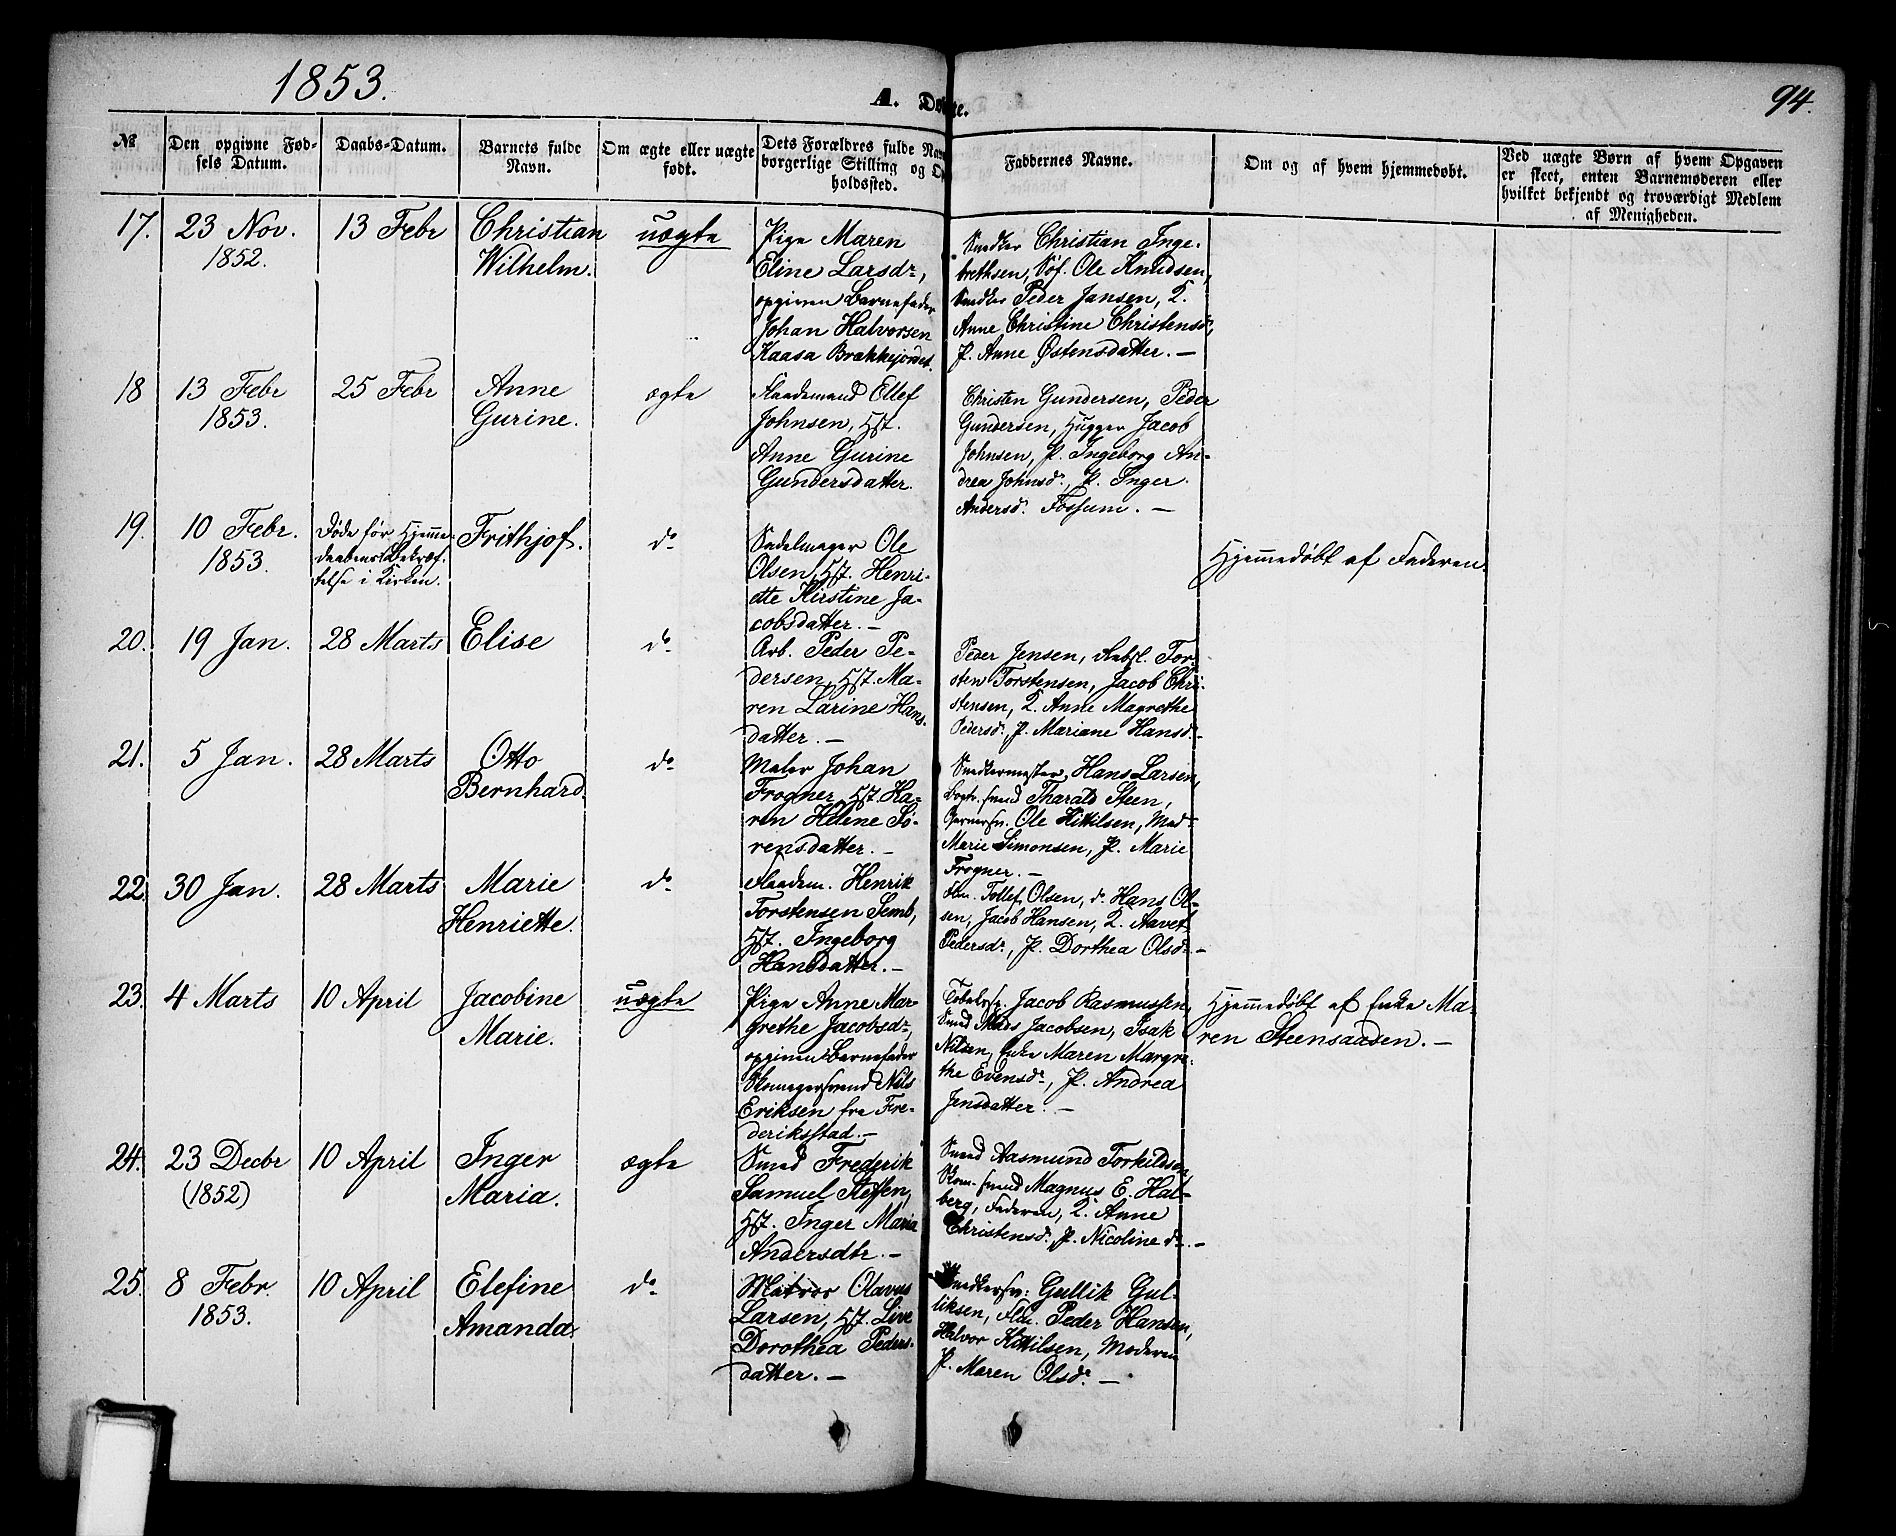 1853.
94.
A. Døbte.
№
Den opgivne Fød-
sels Datum.
Daabs-Datum.
Barnets fulde
Navn.
Om ægte eller uægte
født.
Dets Forældres fulde Nav
borgerlige Stilling og O
holdssted.
Faddernes Navne.
Om og af hvem hjemmedøbt.
Ved uægte Børn af hvem Opgaven
er skeet, enten Barnemøderen eller
hvilket bekjendt og troværdigt Medlem
af Menigheden.
17.
23 Nov.
1852.
13 Febr
Christian
Wilhelm.
uægte
Pige Maren
Eline Larsdr,
opgiven Barnefader
Johan Halvorsen
Kaasa Brækkejordet.
Snedker Christian Inge-
brethsen, Søf. Ole Knudsen,
Snedker Peder Jansen, K.
Anne Christine Christensdr,
P. Anne Østensdatter. —
18
13 Febr
1853.
25 Febr
Anne
Gurine.
ægte
Flaademand Ellef
Johnsen, Hst.
Anne Gurine
Gundersdatter.
Christen Gundersen, Peder
Gundersen, Hugger Jacob
Johnsen, P. Ingeborg An-
drea Johnsdr, P. Inger
Andersdr Fossum. —
19.
10 Febr.
1853.
Døde før Hjemme-
daabens Bekræf-
telse i Kirken.
Frithjof.
do
Sadelmager Ole
Olsen, Hst. Henri-
ette Kirstine Ja-
cobsdatter. —
Hjemmedøbt af Faderen.
20.
19 Jan.
28 Marts
Elise
do
Arb. Peder Pe-
dersen, Hst. Ma-
ren Larine Hans-
datter. —
Peder Jensen, Tor-
sten Torstensen, Jacob Chri-
stensen, K. Anne Magrethe
Pedersdr, P. Mariane Hansdr —
21.
5 Jan.
28 Marts
Otto
Bernhard.
do
Maler Johan
Frogner, Hst. Ka-
ren Helene Sø-
rensdatter. —
Snedkermester Hans Larsen,
Bogtr. svend Tharald Steen,
Garversv. Ole Kittilsen, Mad.
Marie Simonsen, P. Marie
Frogner. —
22.
30 Jan.
28 Marts
Marie
Henriette.
do
Flaadem. Henrik
Torstensen Semb,
Hst. Ingeborg
Hansdatter. —
Flm. Tollef Olsen, do Hans Ol-
sen, Jacob Hansen, K. Aavet
Pedersdr, P. Dorthea Olsdr —
23.
4 Marts
10 April
Jacobine
Marie.
uægte
Pige Anne Mar-
grethe Jacobsdr,
opgiven Barnefader
Skomagersvend Nils
Eriksen fra Fre-
deriksstad. —
Jacob Rasmussen,
Smed Mads Jacobsen, Isak
Nilsen, Enke Maren Margre-
the Evensdr, P. Andrea
Jensdatter. —
Hjemmedøbt af Enke Ma-
ren Steensaasen. —
24.
23 Decbr
(1852)
10 April
Inger
Maria.
ægte
Smed Frederik
Samuel Steffen,
Hst. Inger Maria
Andersdtr. —
Smed Aasmund Torkildsen,
Skom. svend Magnus E. Hal-
berg, Faderen, K. Anne
Christensdr, P. Nicoline do. —
25.
8 Febr.
1853.
10 April
Elefine
Amanda.
do
Matros Olavus
Larsen, Hst. Live
Dorothea Peders-
datter. —
Snedkersv. Gullik Gul-
liksen, Flm. Peder Hansen,
Halvor Kittilsen, Moderen
P. Maren Olsdr. —